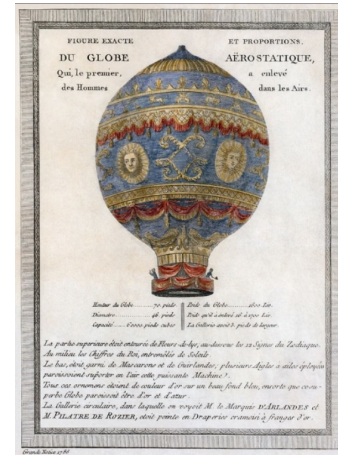 FIGURE EXACTE ET PROPORTIONS.
DU GLOBE AËROSTATIQUE,
Qui, le premier, a enlevé
des Hommes dans les Airs.
Hauteur du Globe 70. pieds
Diametre 46. pieds
Capacité 60000 pieds cubes
Poids du Globe 1600. Liv.
Poids qu'il a enlevé 16 à 1700. Liv.
La Gallerie avoit 3. pieds de largeur.
La partie superieure étoit entourée de Fleurs-de-lys, au dessous les 12 Signes du Zodiaque.
Au milieu les Chiffres du Roi, entremêlés de Soleils
Le bas, étoit garni de Mascarons et de Guirlandes; plusieurs Aigles a ailes éployées
paroissoient suporter en l'air cette puissante Machine.
Tous ces ornemens étoient de couleur d'or sur un beau fond bleu, ensorte que ce
superbe Globe paroissoit être d'or et d'azur.
La Gallerie circulaire, dans laquelle on voyoit M. le Marquis D'ARLANDES et
M. PILATRE DE ROZIER, étoit peinte en Draperies cramoisi à franges d'or.